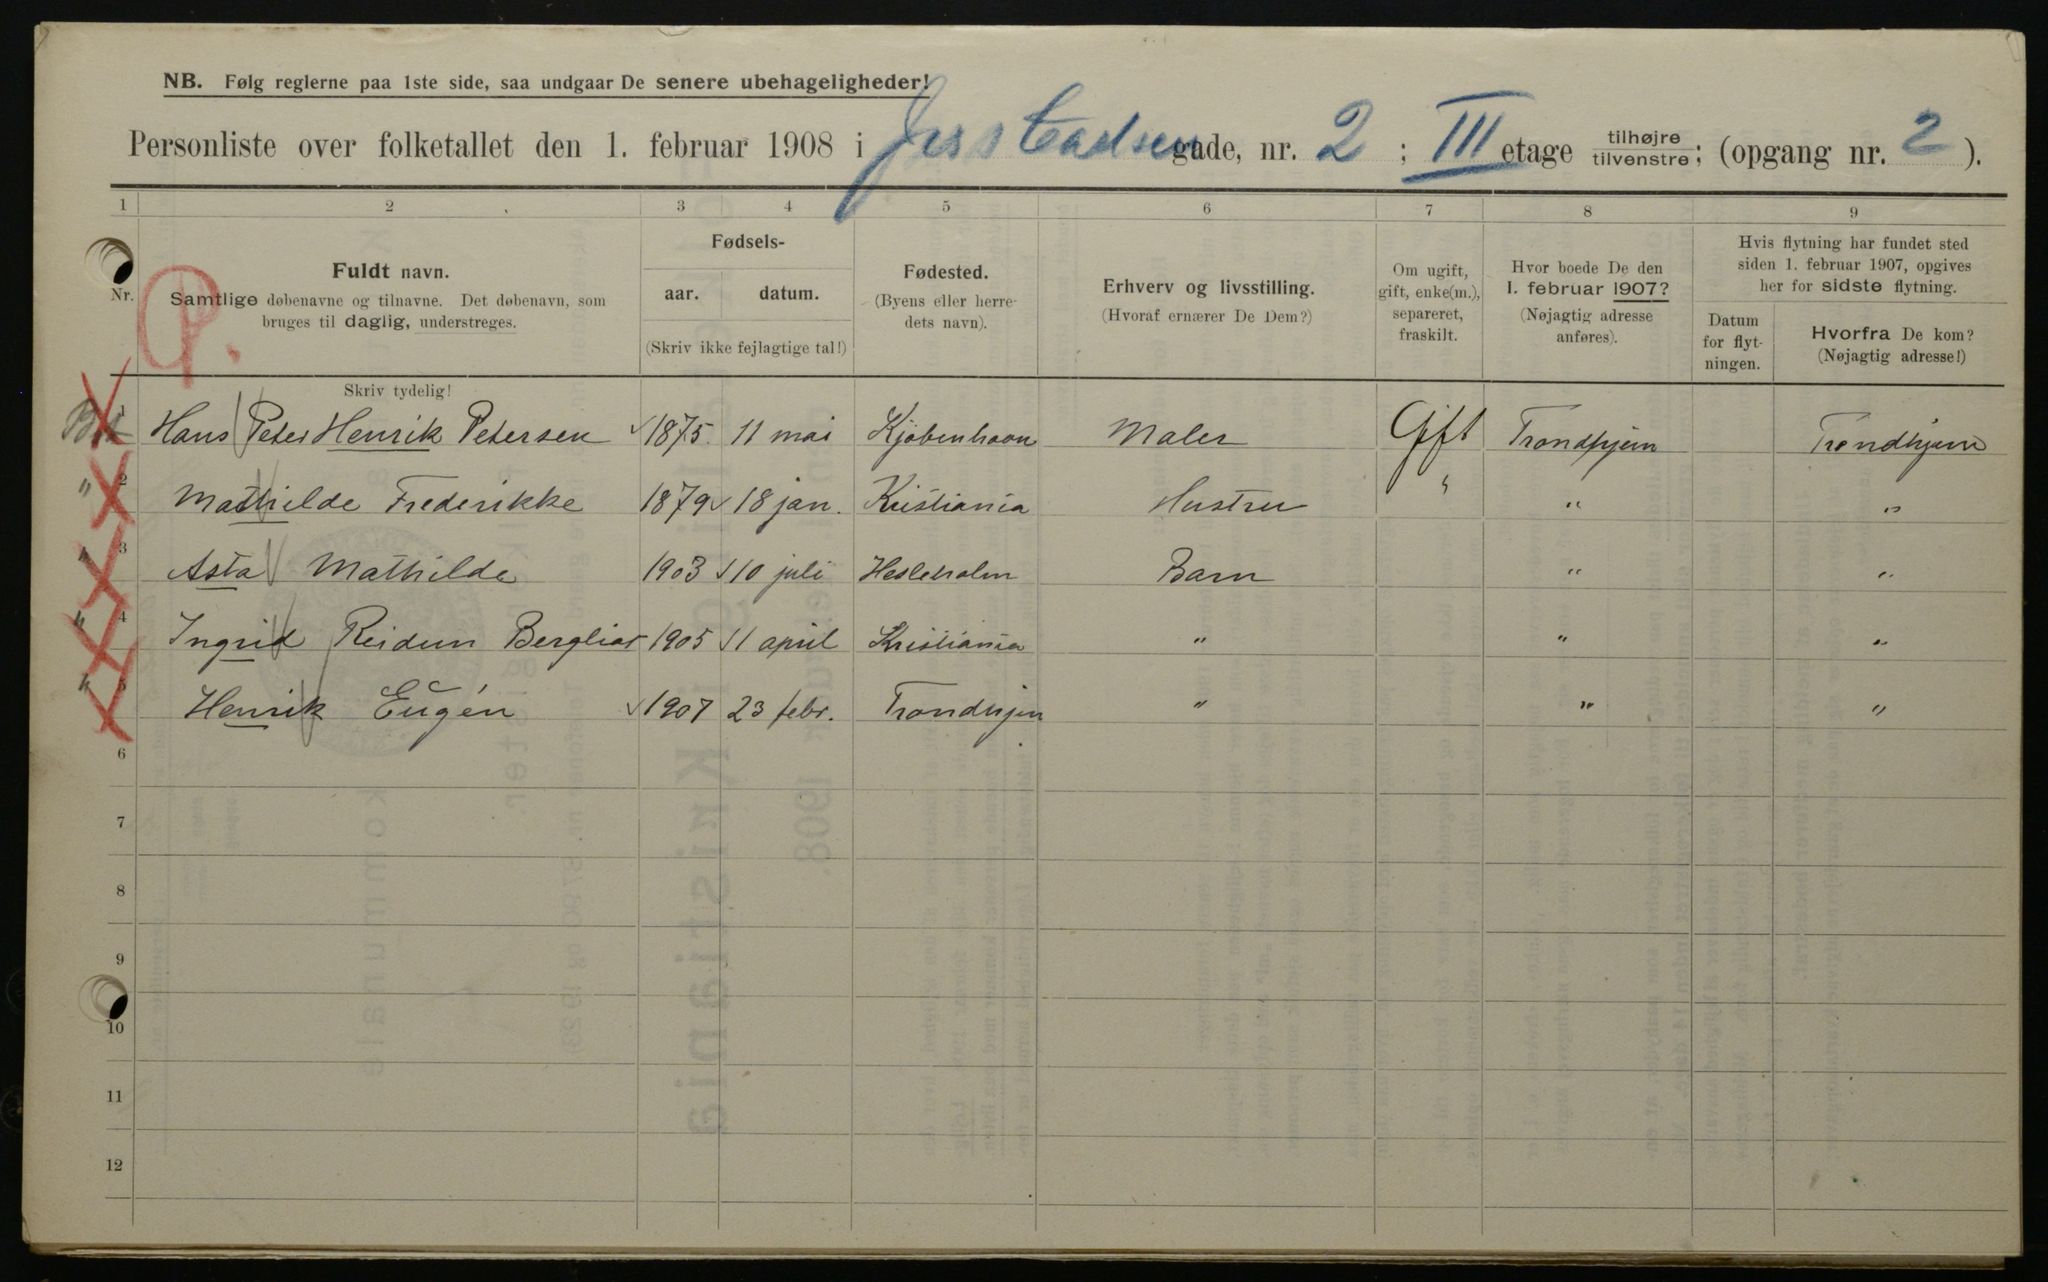 NB. Følg reglerne paa 1ste side, saa undgaar De senere ubehageligheder!
Personliste over folketallet den 1. februar 1908 i gade, nr. 2 ; III etage tilhøjre tilvenstre; (opgang nr. 2 ).
1 2 3 4 5 6 7 8 9
Nr.
Fuldt navn.
Samtlige døbenavne og tilnavne. Det døbenavn, som
bruges til daglig, understreges.
Skriv tydelig!
Fødsels-
aar. datum.
(Skriv ikke fejlagtige tal!)
Fødested.
(Byens eller herre-
dets navn).
Erhverv og livsstilling.
(Hvoraf ernærer De Dem?)
Om ugift,
gift, enke(m.),
separeret,
fraskilt.
Hvor boede De den
1. februar 1907?
(Nøjagtig adresse
anføres).
Hvis flytning har fundet sted
siden 1. februar 1907, opgives
her for sidste flytning.
Datum
for flyt-
ningen.
Hvorfra De kom?
(Nøjagtig adresse!)
P.
1 Hans Peter Henrik Petersen 1875. 11 mai Kjøbenhavn Maler Gift Trondhjem Trondhjem
" 2 Mathilde Frederikke 1879 18 jan. Kristiania Hustru " " "
" 3 Asta Mathilde 1903 10 juli Barn " "
" 4 Ingrid Reidun Bergliot 1905 11 april Kristiania " " "
" 5 Henrik Eugén 1907 23 febr. Trondhjem " " "
6
7
8
9
10
11
12